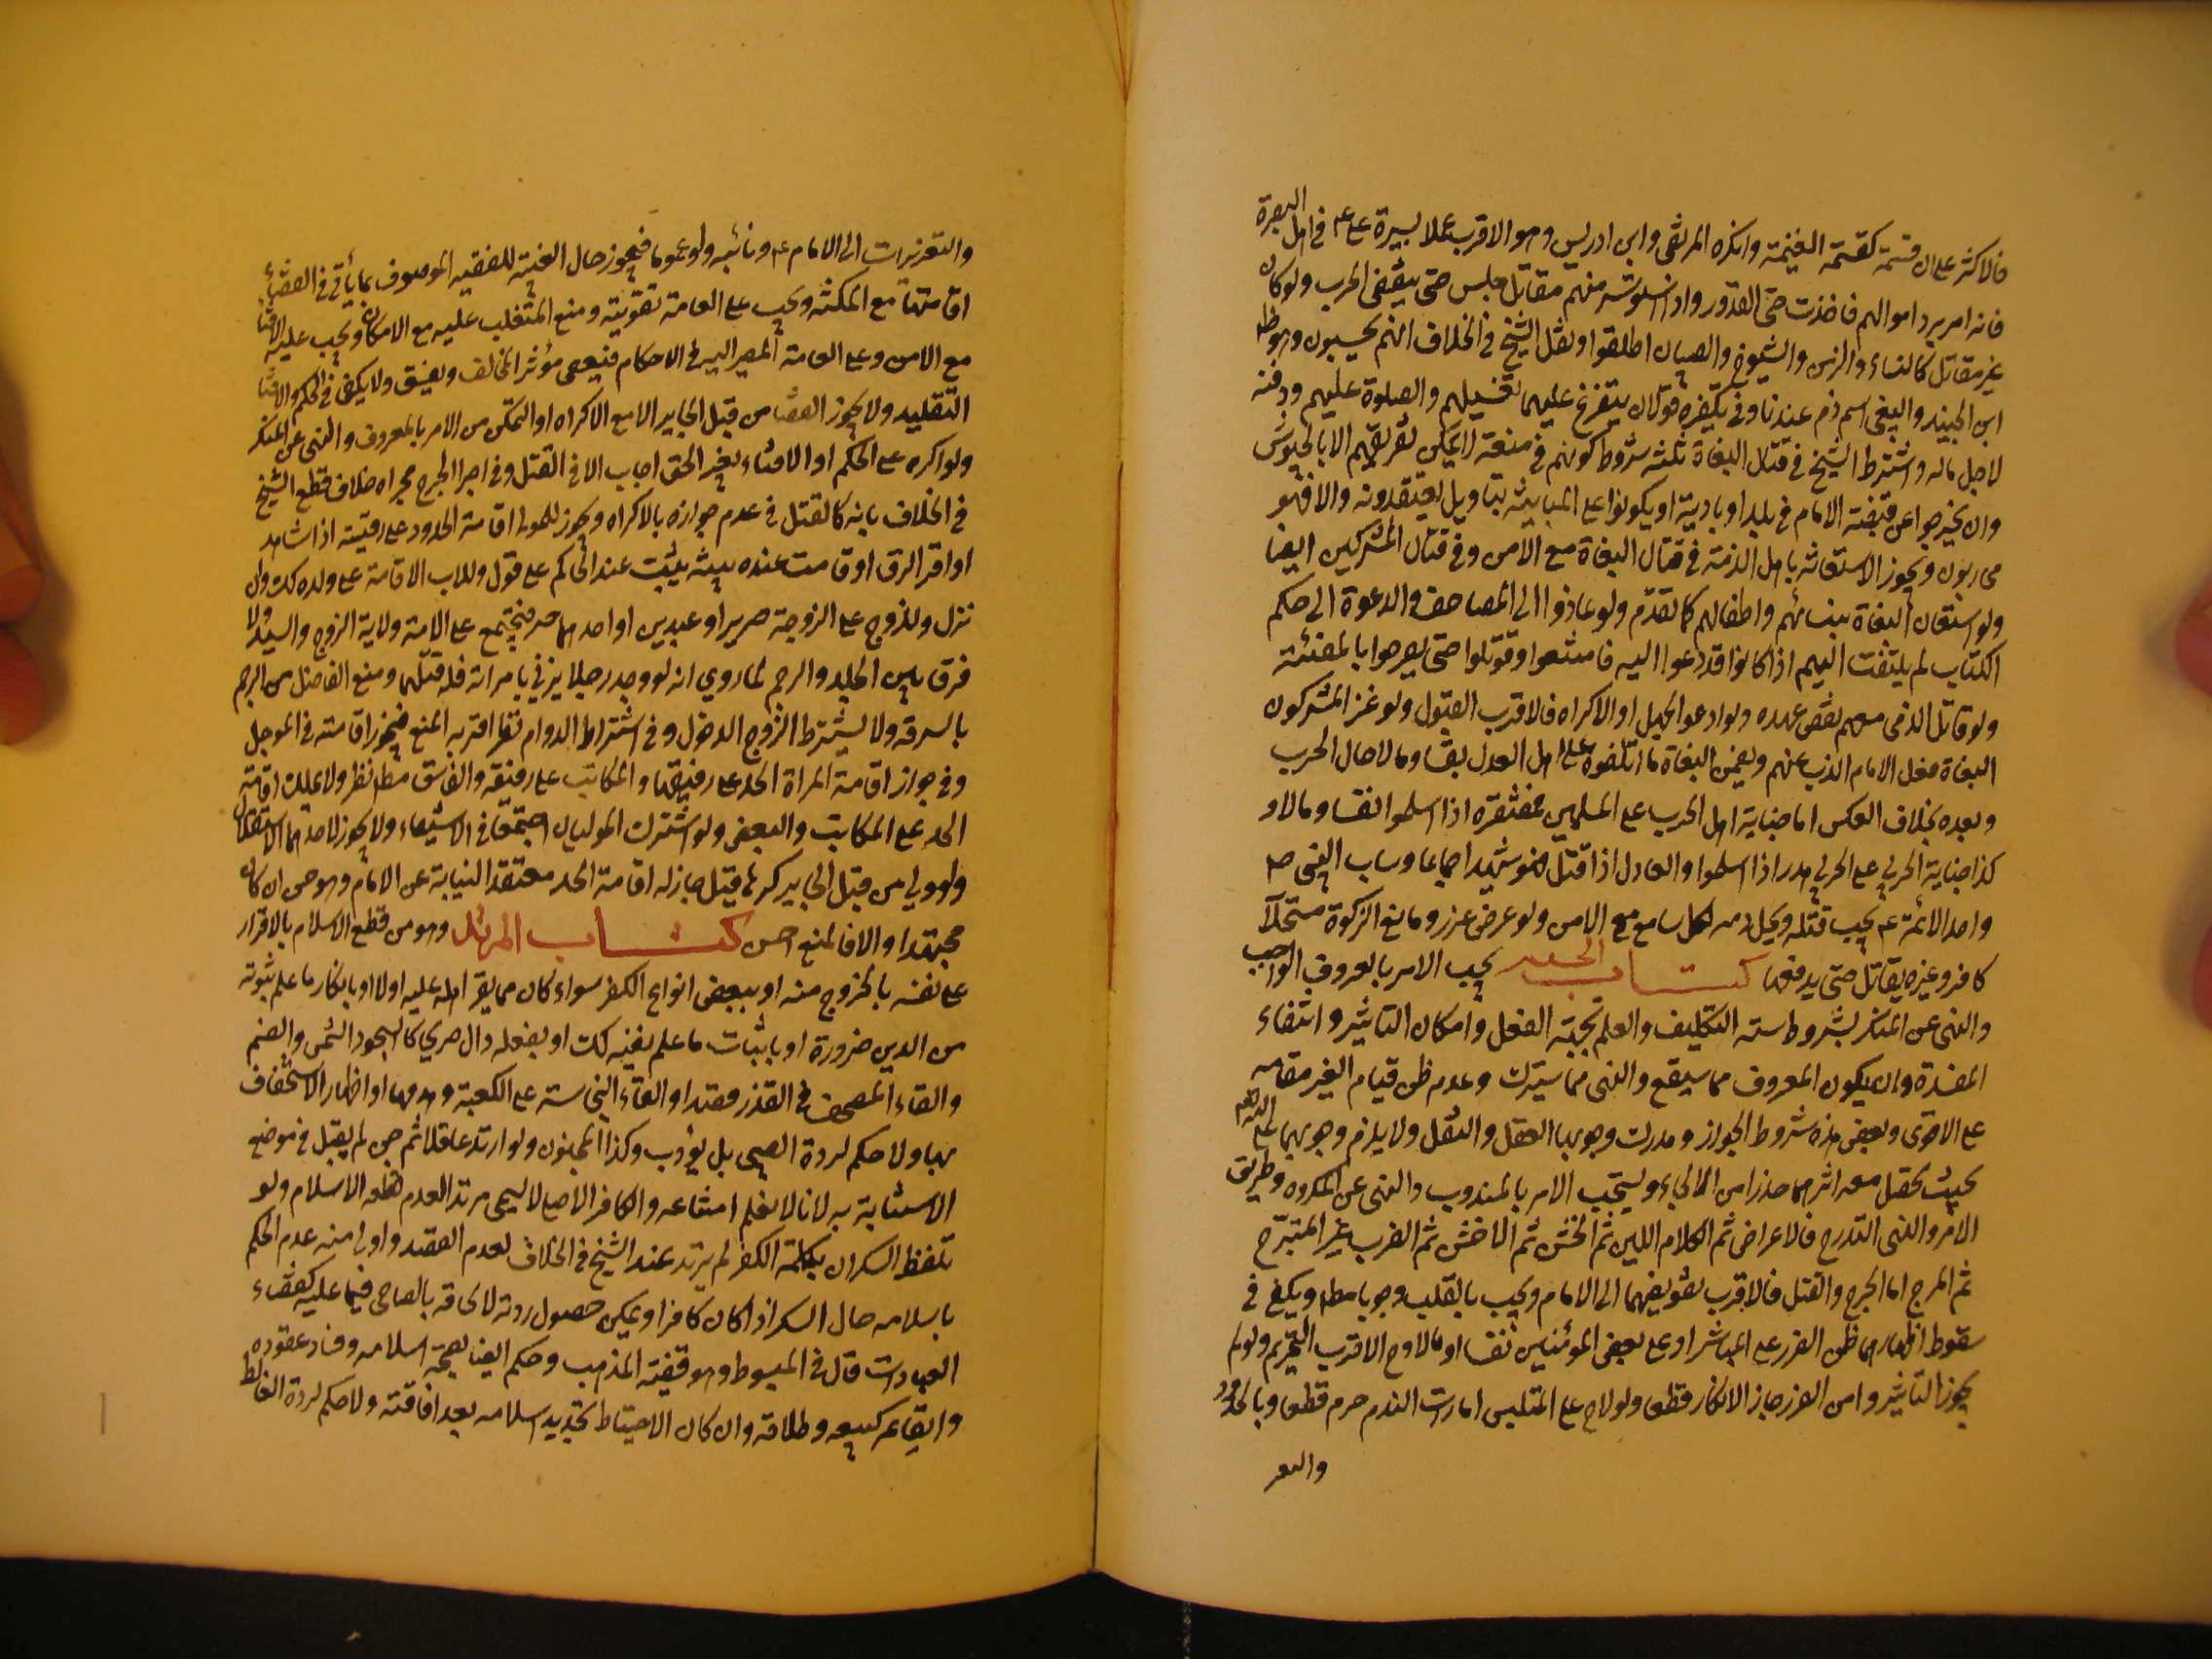 فالاكثر على ان قسمته كقسمة الغنيمة وانكره المرتضى وابن ادريس وهو الاقرب عملا بسيرة علي ع في اهل البصرة
فانه امر برد اموالهم فاخذت حتى القدور واذا منهم مقاتل حبس حتى ينقضي الحرب ولو كان
غير مقاتل كالنساء والزمن والشيوخ والصبيان اطلقوا ونقل الشيخ في الخلاف انهم يحبسون وهو ظ
ابن الجنيد والبغي اسم ذم عندنا وفي تكفيره قولان يتفرع عليهما تغسيلهم والصلوة عليهم ودفنه
لاجل ماله واشترط الشيخ في قتال البغاة ثلثة شروط كونهم في منعة لا يمكن تفريقهم الا بالجيوش
وان يخرجوا عن قبضة الامام في بلد او بادية او يكونوا على المباينة بتاويل يعتقدونه والا فهو
محاربون ويجوز الاستعانة باهل الذمة في قتال البغاة مع الامن وفي قتال المشركين ايضا
ولو استعان البغاة بنسائهم واطفالهم كما تقدم ولو عاذوا الى المصاحف والدعوة الى حكم
الكتاب لم يلتفت اليهم اذا كانوا قد دعوا اليه فامتنعوا وقوتلوا حتى يصرحوا بالفئة
ولو قاتل الذمي معهم نقض عهده ولو ادعوا الجهل او الاكراه فالاقرب القبول ولو غز المشركون
البغاة فعلى الامام الذب عنهم ويضمن البغاة ما اتلفوه على اهل العدل نفسا ومالا حال الحرب
وبعده بخلاف العكس اما جناية اهل الحرب على المسلمين فمغتفرة اذا اسلموا نفسا ومالا و
كذا جناية الحربي على الحربي هدر اذا اسلموا والعادل اذا قتل فهو شهيد اجماعا وساب النبي ص
واحد الائمة ع يجب قتله ويحل دمه لكل سامع مع الامن ولو عرض عزر ومانع الزكوة مستحلا
كافر وغيره يقاتل حتى يدفعها كتاب الحسبة يجب الامر بالمعروف الواجب
والنهي عن المنكر بشروط ستة التكليف والعلم بجهة الفعل وامكان التاثير وانتفاء
المفسدة وان يكون المعروف مما سيقع والنهي مما سيترك وعدم ظن قيام الغير مقامه
على الاقوى وبعض هذه شروط الجواز ومدرك وجوبهما العقل والنقل ولا يلزم وجوبهما على الله تعالى
بحيث يحصل معه اثرهما حذرا من الالجاء ويستحب الامر بالمندوب والنهي عن المكروه وطريق
الامر والنهي التدرج فالاعراض ثم الكلام اللين ثم الخشن ثم الاخشن ثم الضرب غير المبرح
ثم المبرح اما الجرح والقتل فالاقرب تفويضهما الى الامام ويجب بالقلب وجوبا مط ويكفي في
سقوط اظهارهما ظن الضرر على المباشر او على بعض المؤمنين نفسا او مالا وح الاقرب التحريم ولو لم
يجوز التاثير وامن الضرر جاز الانكار قطعا ولو لاح على المتلبس امارت الندم حرم قطعا وبالحدود
والتعز
والتعزيرات الى الامام ع ونائبه ولو عموما فيجوز حال الغيبة للفقيه الموصوف بما يأتي في القضاء
اقامتها مع المكنة ويجب على العامة تقويته ومنع المتغلب عليه مع الامكان ويجب عليه الافتاء
مع الامن وعلى العامة المصير اليه في الاحكام فيعصي مؤثر المخالف ويفسق ولا يكفي في الحكم والافتاء
التقليد ولا يجوز القضاء من قبل الجاير الا مع الاكراه او التمكن من الامر بالمعروف والنهي عن المنكر
ولو اكره على الحكم او الافتاء بغير الحق اجاب الا في القتل وفي اجرا الجرح مجراه خلاف قطع الشيخ
في الخلاف بانه كالقتل في عدم جوازه بالاكراه ويجوز للمولى اقامة الحدود على رقيقه اذا شاهد
او اقر الرق او قامت عنده بينة يثبت عند الحاكم على قول وللاب الاقامة على ولده كك وان
نزل وللزوج على الزوجة حرين او عبدين او احدهما حر فيجتمع على الامة ولاية الزوج والسيد ولا
فرق بين الجلد والرجم لما روي انه لو وجد رجلا يزني بامراته فله قتلهما ومنع الفاضل من الرجم
بالسرقة ولا يشترط الزوج الدخول وفي اشتراط الدوام نظر اقربه المنع فيجوز اقامته في الموجل
وفي جواز اقامة المراة الحد على رقيقها والمكاتب على رقيقه والفاسق مط نظر ولا يملك اقامة
الحد على المكاتب والبعض ولو اشترك الموليان اجتمعا في الاستيفاء ولا يجوز لاحدهما الاستقلال
ولو ولي من قبل الجاير كرها قيل جاز له اقامة الحد معتقدا النيابة عن الامام وهو حسن ان كان
مجتهدا والا فالمنع احسن كتاب المرتد وهو من قطع الاسلام بالاقرار
على نفسه بالخروج منه او ببعض انواع الكفر سواء كان مما يقر اهله عليه اولا او بانكار ما علم ثبوته
من الدين ضرورة او باثبات ما علم نفيه كك او بفعله دال صريحا كالسجود للشمس والصنم
والقاء المصحف في القذر قصدا او القاء النجاسة على الكعبة وهدمها او اظهار الاستخفاف
بها ولا حكم لردة الصبي بل يؤدب وكذا المجنون ولو ارتد عاقلا ثم جن لم يقتل في موضع
الاستتابة به لانا لا نعلم امتناعه والكافر الاصلي لا يسمى مرتدا لعدم قطعه الاسلام ولو
تلفظ السكران بكلمة الكفر لم يرتد عند الشيخ في الخلاف لعدم القصد واولى منه عدم الحكم
باسلامه حال السكر اذا كان كافرا ويمكن حصول ردته لالحاقه بالصاحي فيما عليه كقضاء
العبادات قال في المبسوط وهو قضية المذهب وحكم ايضا بصحة اسلامه وفساد عقوده
وايقاعه كبيعه وطلاقه وان كان الاحتياط تجديد اسلامه بعد افاقته ولا حكم لردة الغالط